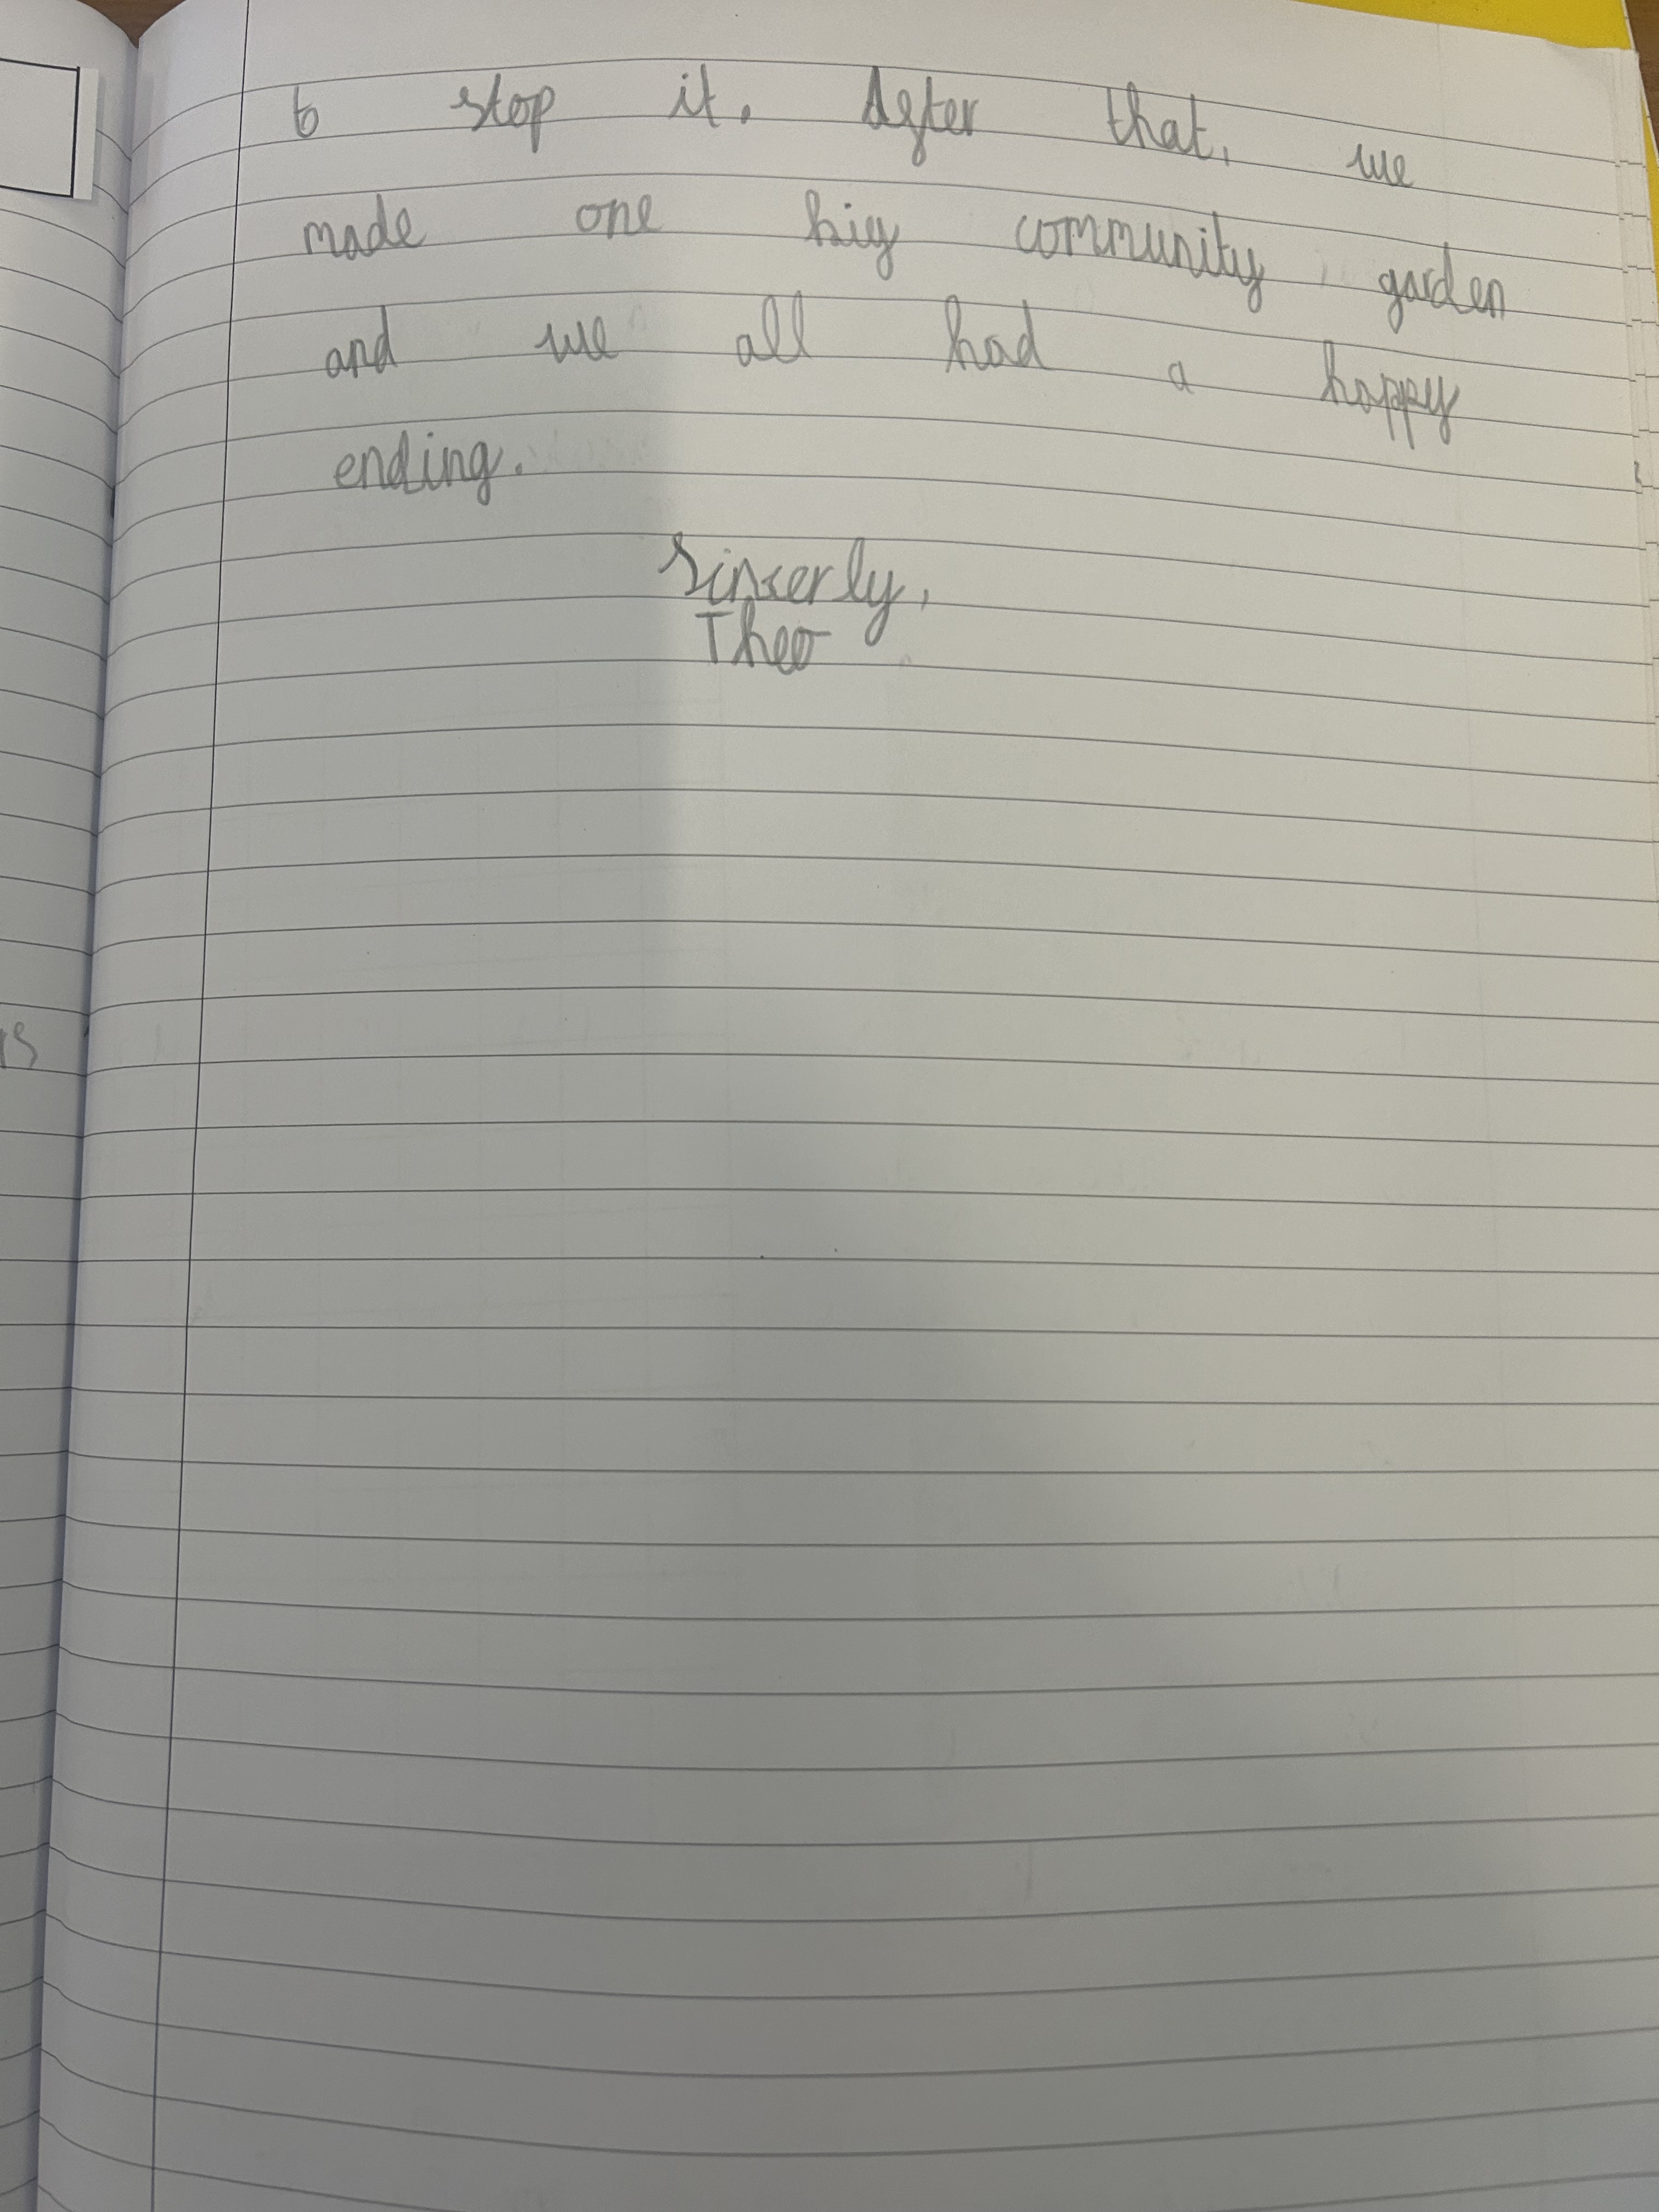 to stop it. After that, we
made one big community garden
and we all had a happy
ending.
Sincerly,
Theo